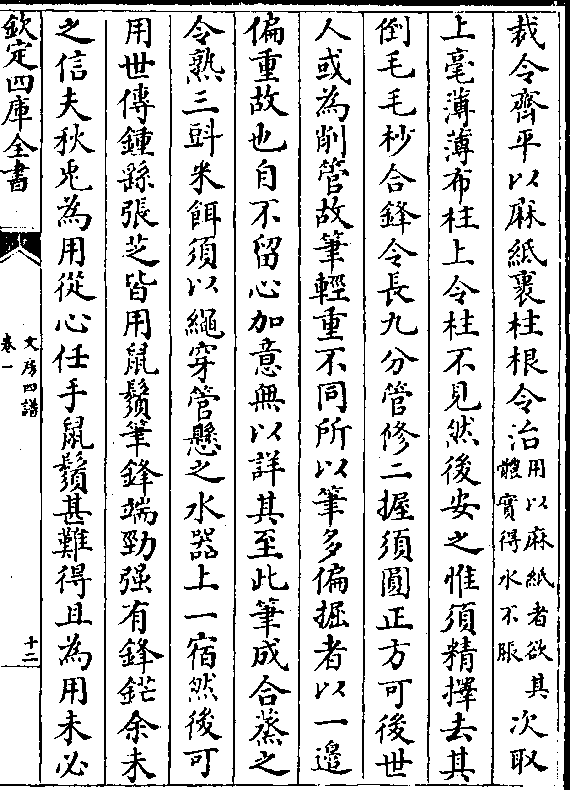 裁令齊平以麻紙裹柱根令治用以麻紙者欲其體實得水不脹次取
上毫薄薄布柱上令柱不見然後安之惟須精擇去其
倒毛毛杪合鋒令長九分管修二握須圓正方可後世
人或為削管故筆輕重不同所以筆多偏掘者以一邉
偏重故也自不留心加意無以詳其至此筆成合蒸之
令熟三㪷米餌須以繩穿管懸之水器上一宿然後可
用世傳鍾繇張芝皆用鼠鬚筆鋒端勁强有鋒鋩余未
之信夫秋兎為用從心任手鼠鬚甚難得且為用未必
欽定四庫全書
文房四譜
卷一
十二